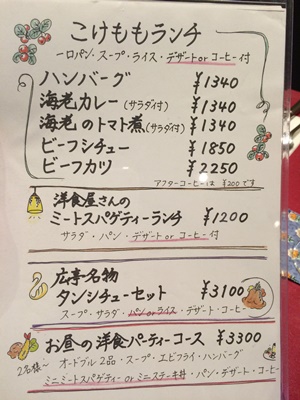 こけももランチ
一口パン・スープ・ライス・デザートorコーヒー付
ハンバーグ ¥1340
海老カレー(サラダ付) ¥1340
海老のトマト煮(サラダ付) ¥1340
ビーフシチュー ¥1850
ビーフカツ ¥2250
アフターコーヒーは ¥200です
洋食屋さんの
ミートスパゲティーランチ ¥1200
サラダ・パン・デザートorコーヒー付
広亭名物
タンシチューセット ¥3100
スープ・サラダ・パンorライス・デザート・コーヒー
お昼の洋食パーティーコース ¥3300
2名様〜 オードブル2品・スープ・エビフライ・ハンバーグ
ミニミートスパゲティー or ミニステーキ丼・パン・デザート・コーヒー